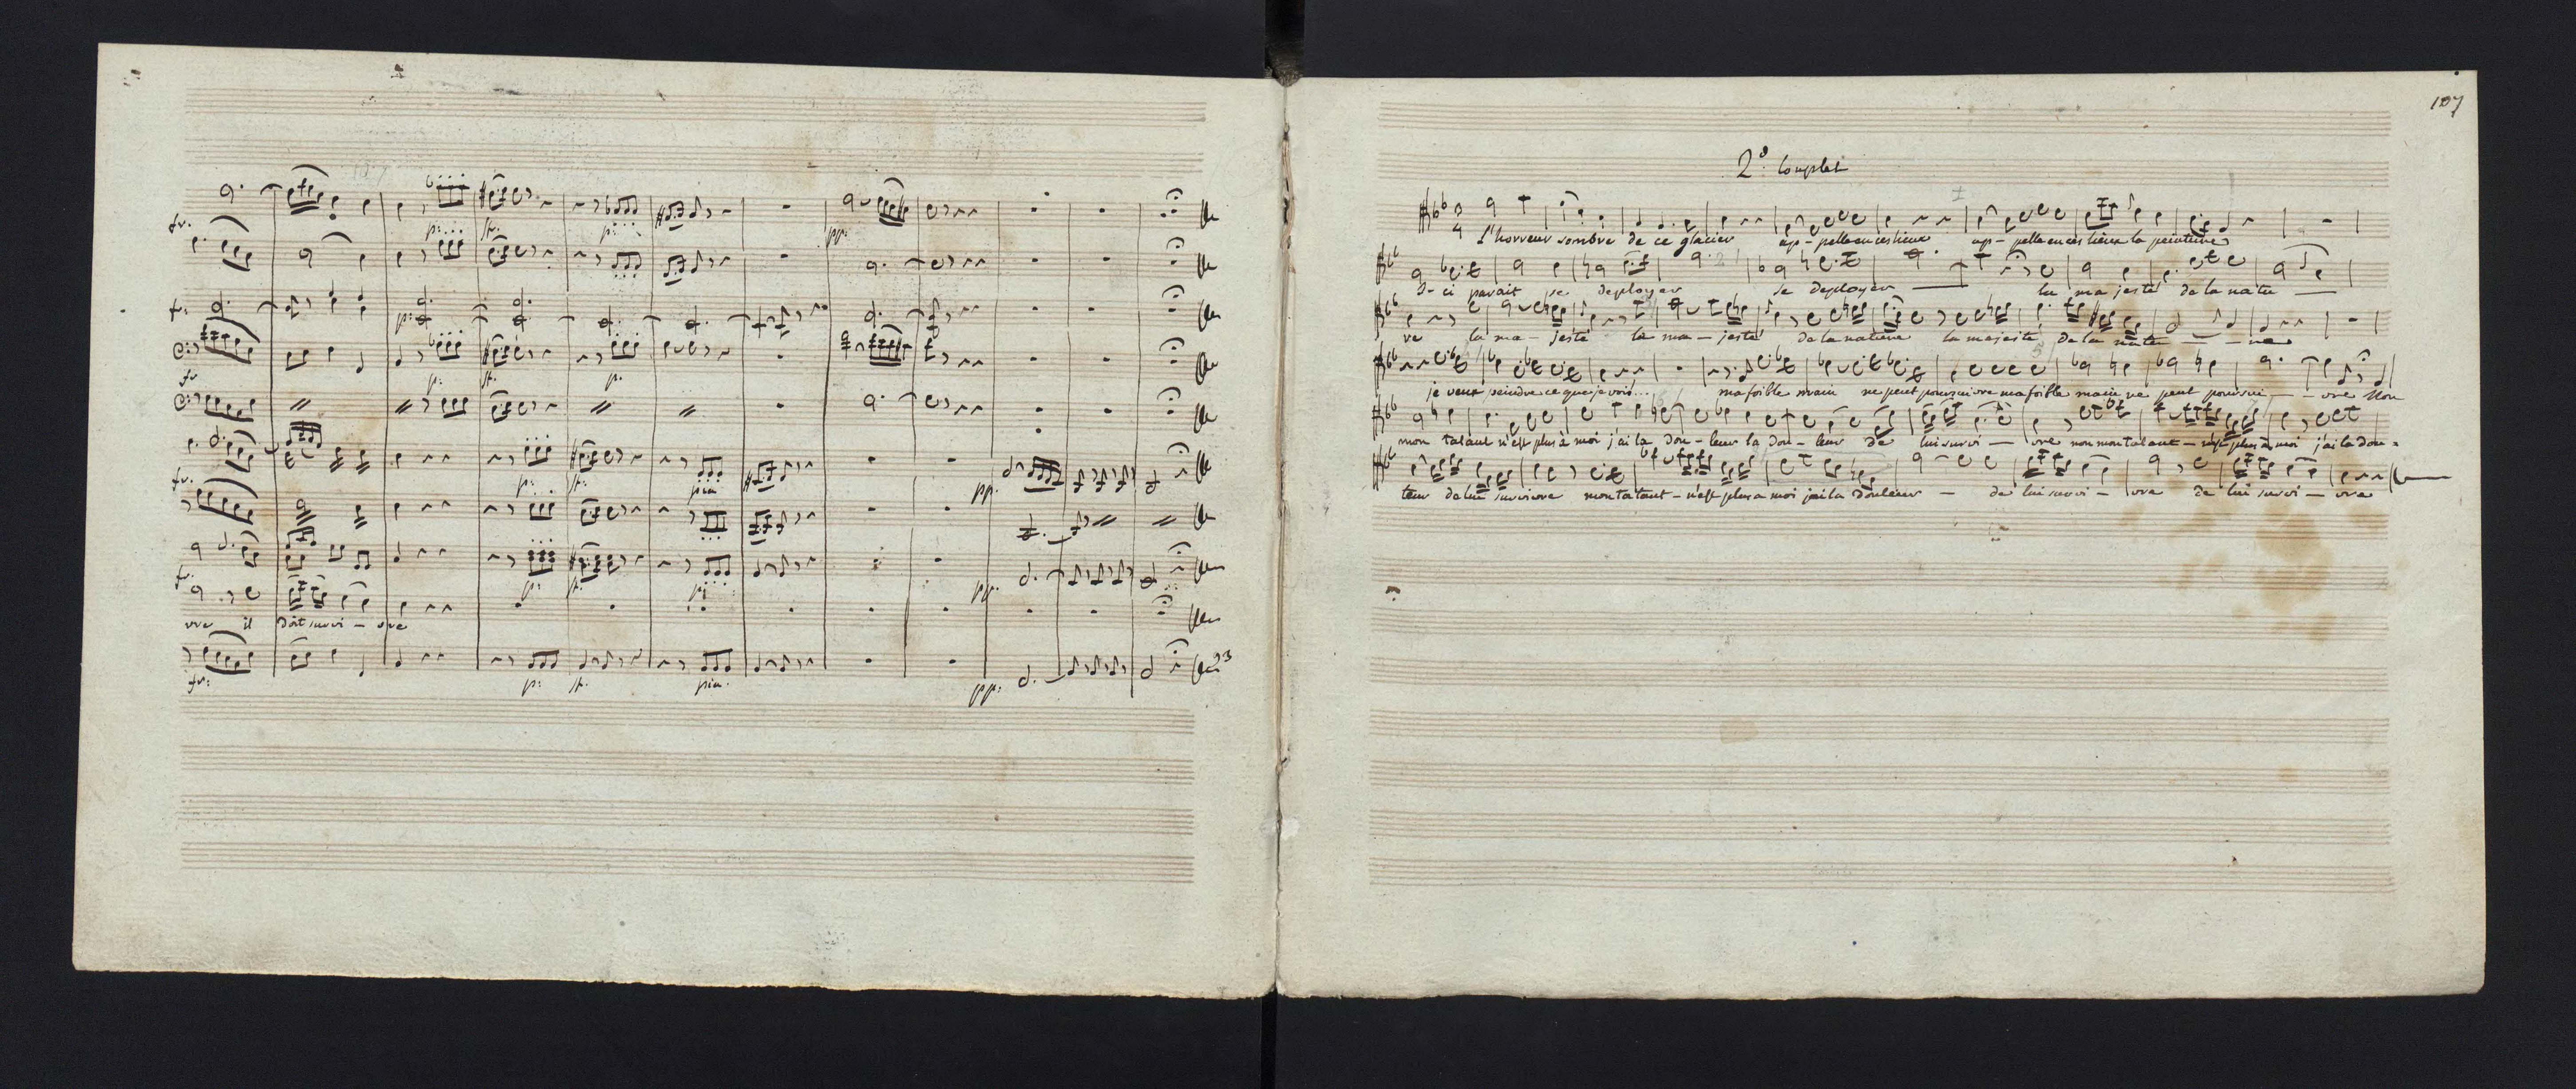 fr.
p: sf. p: pp:
fr:
p:
fr p: sf. p.
fr. p: sf. pia pp.
fr. p: sf. p: pp.
vre il doit survi - vre
fr: p: sf. pia. pp:
107
2e. Couplet
L'horreur sombre de ce glacier ap - pelle en ces lieux ap - pelle en ces lieux la peinture
I - ci parait se deployer se deployer la ma jesté de la natu
re la ma - jesté la ma - jesté de la nature la majesté de la natu - re
je veux peindre ce que je vois... ma foible main ne peut poursuivre ma foible main ne peut poursui - vre Non
mon talant n'est plus à moi j'ai la dou - leur la dou - leur de lui survi - vre non mon talant - n'est plus à moi j'ai la dou =
leur de lui survivre mon talant - n'est plus a moi j'ai la douleur - de lui survi - vre de lui survi - vre